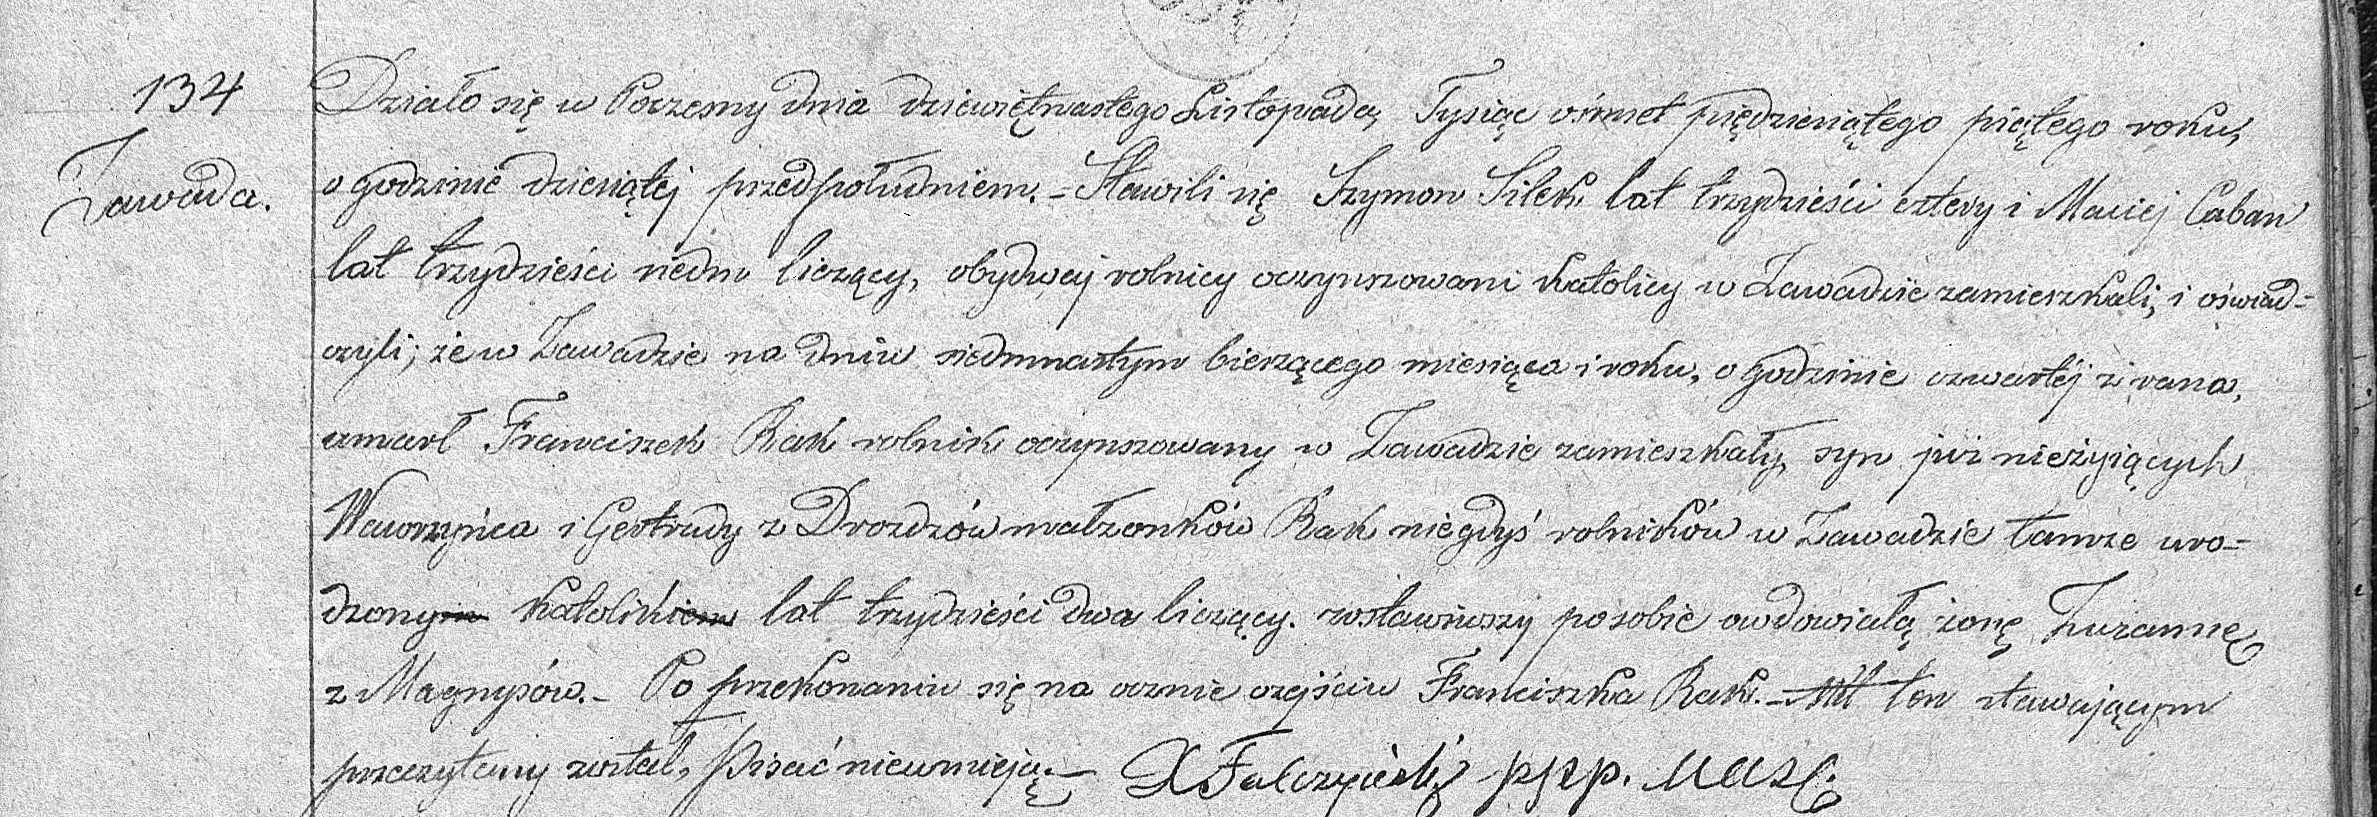 134
Zawada.
Działo się w Poczesny dnia dziewiętnastego Listopada, Tysiąc ośmset piędziesiątego piątego roku,
o godzinie dziesiątej przedpołudniem. - Stawili się Szymon Siłek lat trzydzieści cztery i Maciej Caban
lat trzydzieści siedm liczący, obydwaj rolnicy oczynszowani katolicy w Zawadzie zamieszkali, i oświad-
czyli; że w Zawadzie na dniu siedmnastym bierzącego miesiąca i roku, o godzinie czwartéj z rana,
umarł Franciszek Rak rolnik oczynszowany w Zawadzie zamieszkały, syn już nieżyiących
Wawrzyńca i Gertrudy z Drozdzów małzonków Rak niegdyś rolników w Zawadzie tamże uro-
dzonym katolikiem lat trzydzieści dwa liczący. zostawiwszy po sobie owdowiałą żonę Zuzannę
z Magnysów. - Po przekonaniu się na ocznie o zejściu Franciszka Rak. - Akt ten stawającym
przeczytany został, Pisać nieumieją. - X